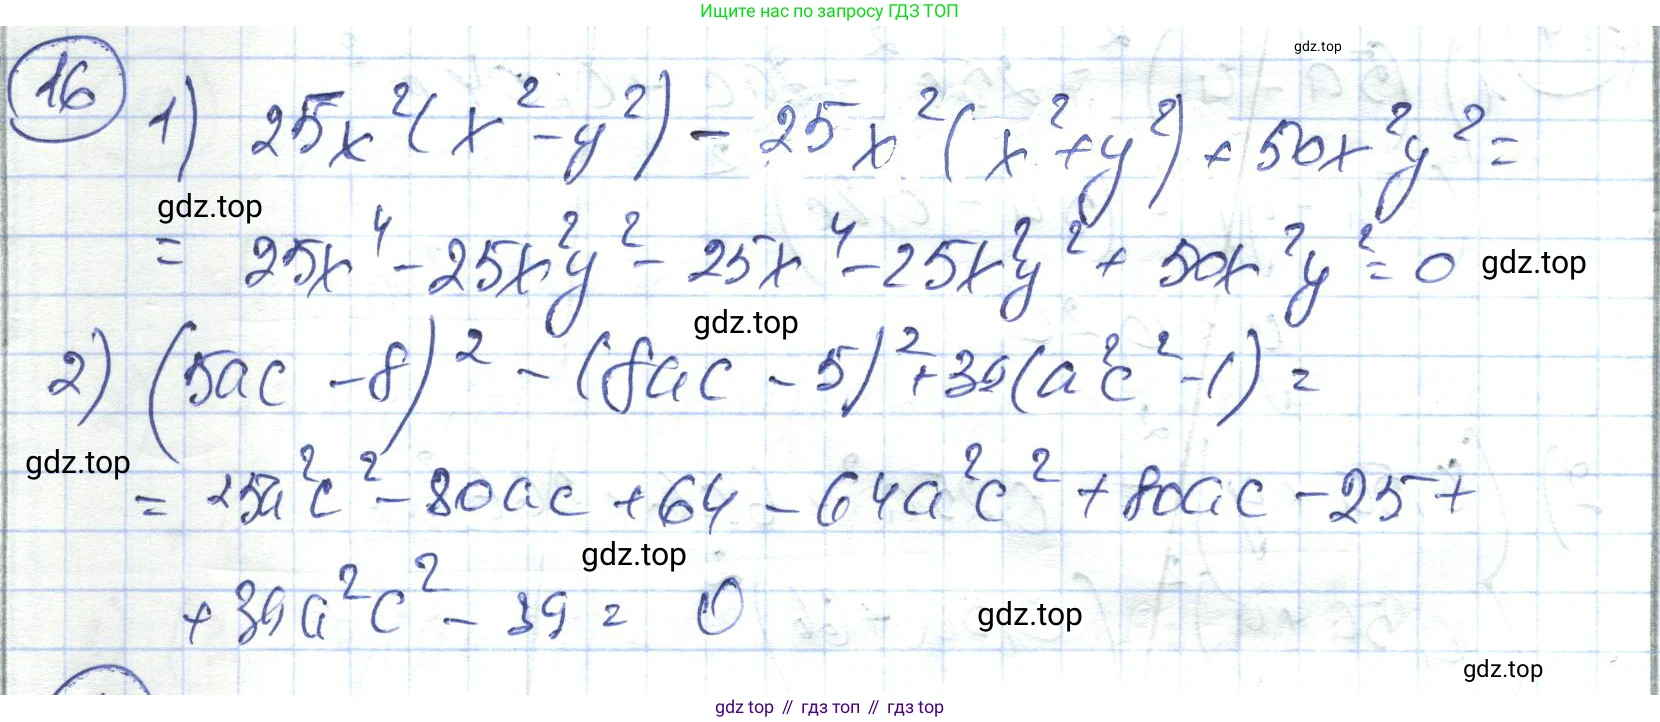 Ищите нас по запросу ГДЗ ТОП
gdz.top
16
1) 25x²(x²-y²) - 25x²(x²+y²) + 50x²y² =
gdz.top
= 25x⁴ - 25x²y² - 25x⁴ - 25x²y² + 50x²y² = 0
gdz.top
gdz.top
2) (5ac - 8)² - (8ac - 5)² + 39(a²c² - 1) =
gdz.top
= 25a²c² - 80ac + 64 - 64a²c² + 80ac - 25 +
gdz.top
+ 39a²c² - 39 = 0
gdz.top
gdz.top
gdz top // гдз топ // гдз top